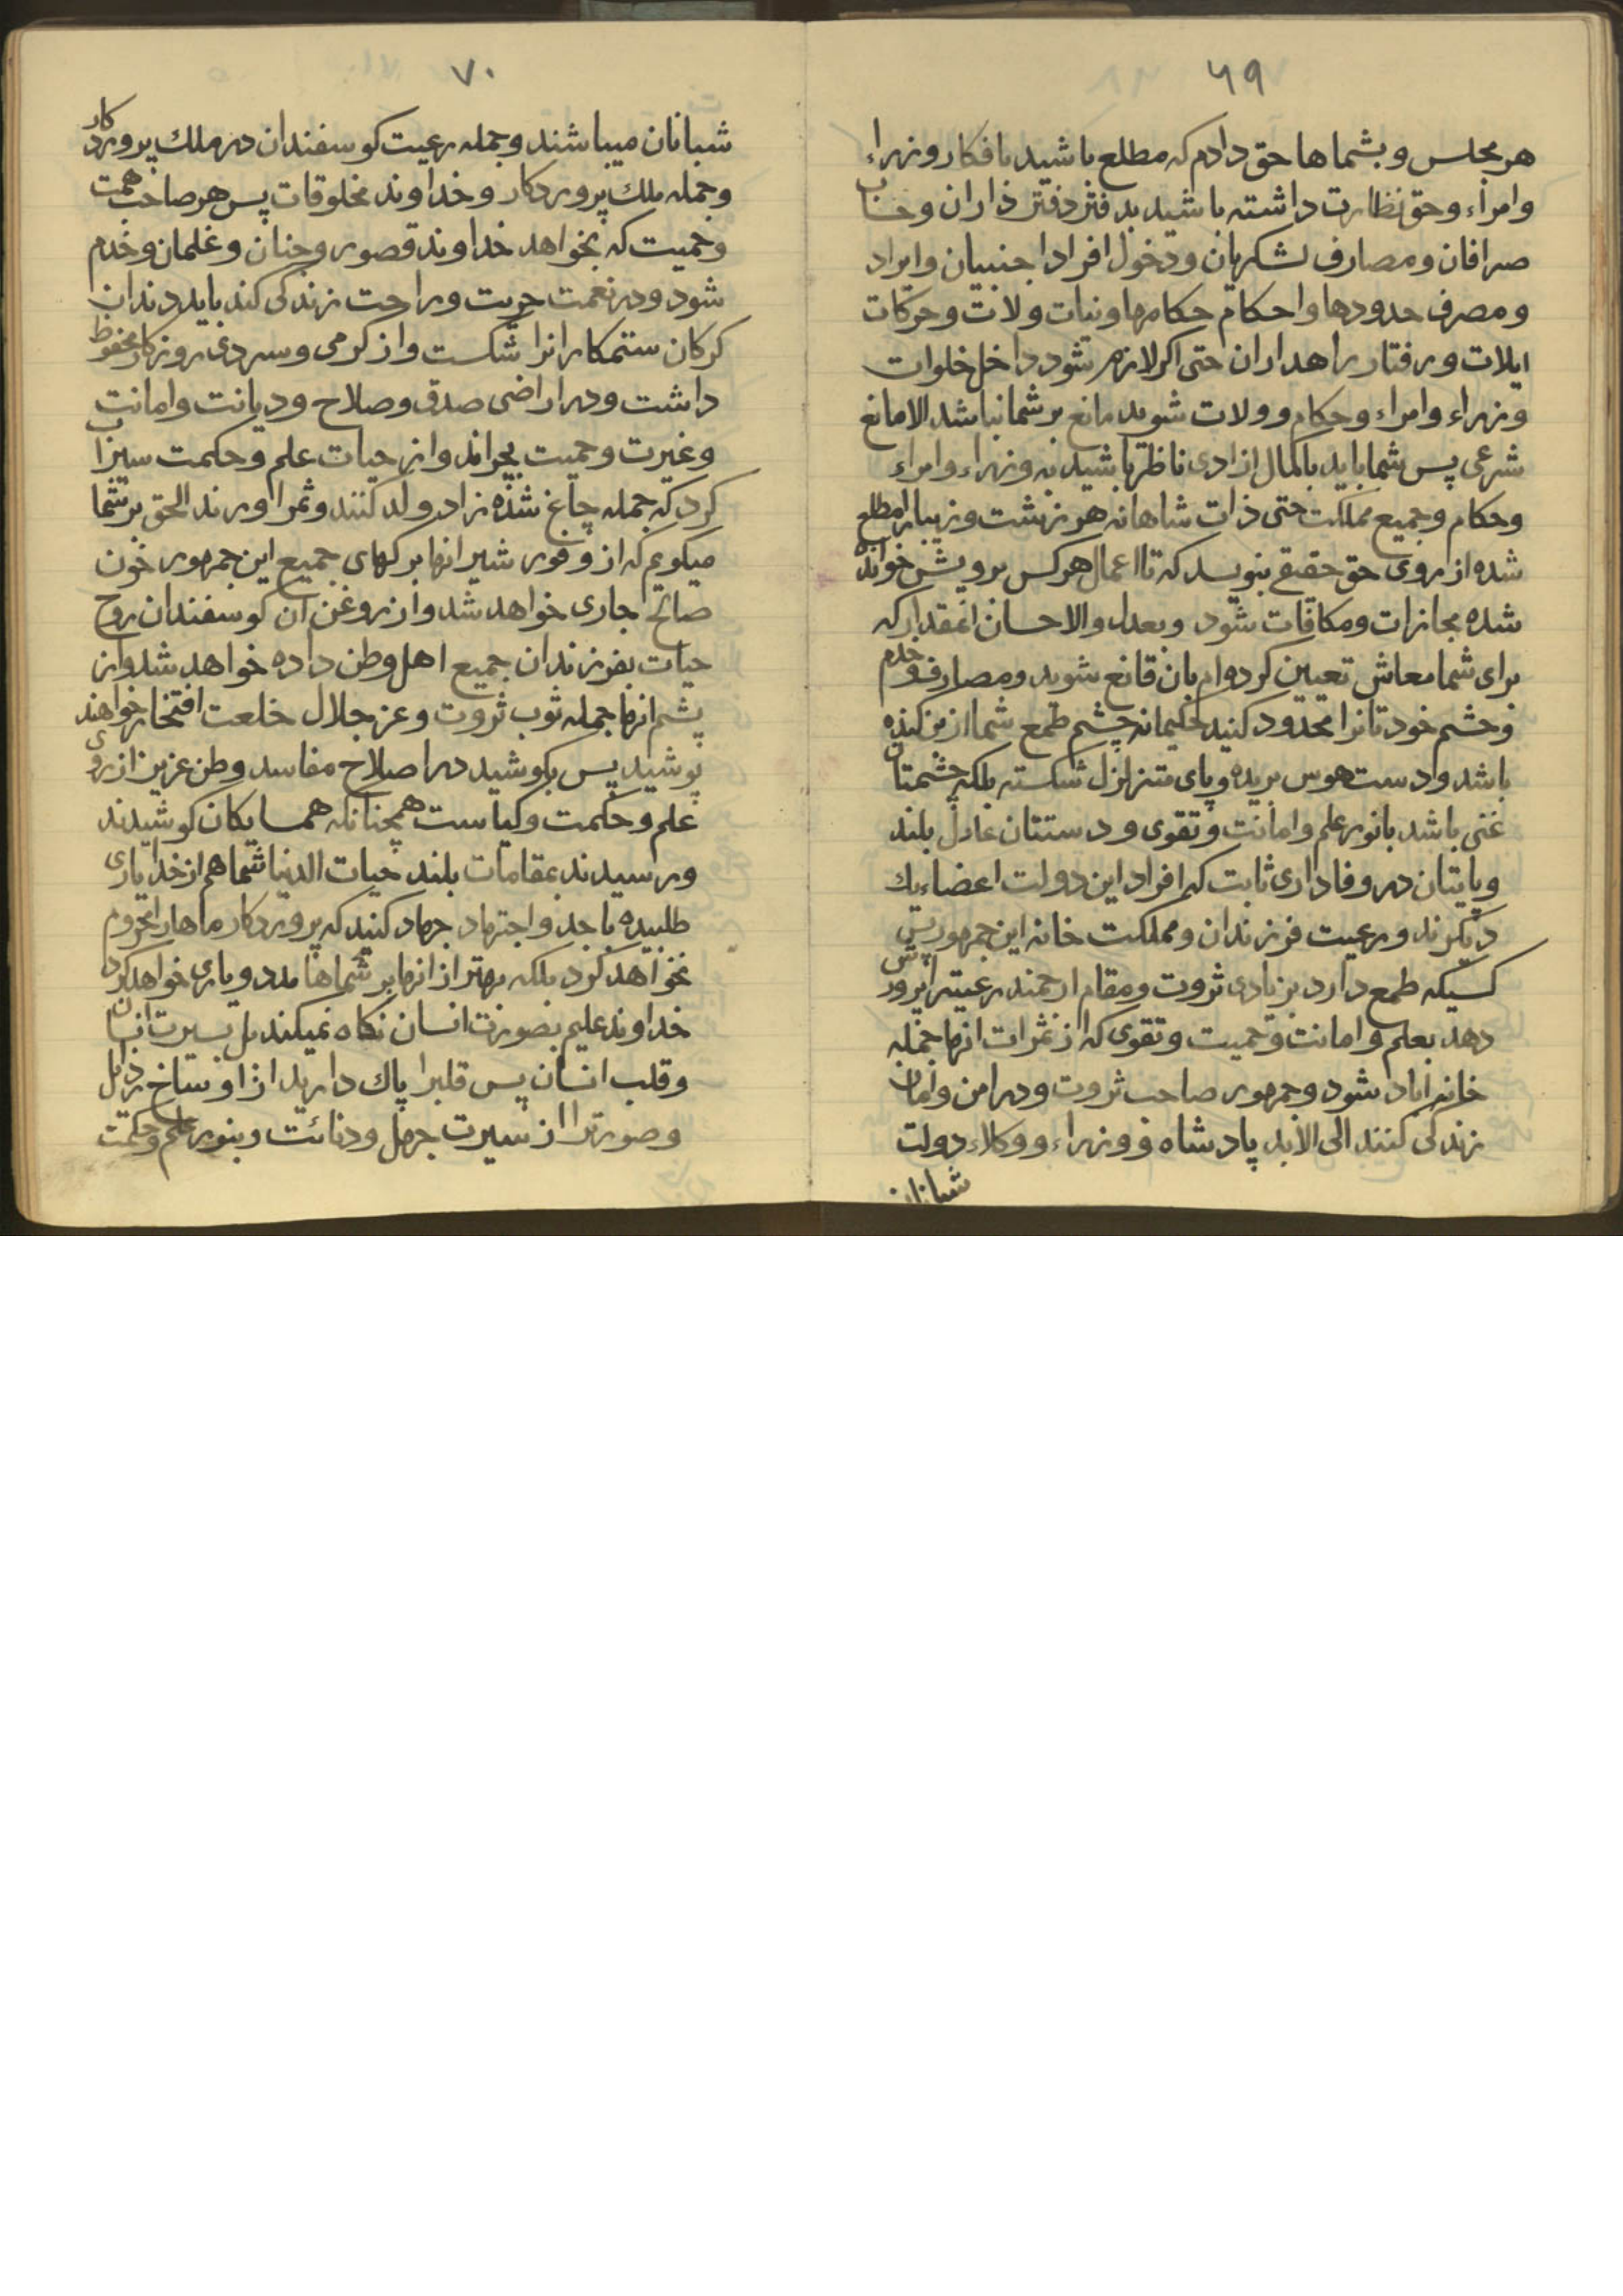 ۶۹
هر مجلس و بشماها حق دادم که مطلع باشید بافکار وزراء
وامراء وحق نظارت داشته باشید بدفتر دفتر داران وحساب
صرافان ومصارف لشکریان ودخول افراد اجنبیان وایراد
ومصرف حدودها واحکام حکامها ونیات ولات وحرکات
ایلات ورفتار راهداران حتی اکر لازم شود داخل خلوات
وزراء وامراء وحکام وولات شوید مانع بر شما نباشد الا مانع
شرعی پس شما باید بالکمال ازادی ناظر باشید به وزراء وامراء
وحکام وجمیع مملکت حتی ذات شاهانه هر زشت وزیبا را مطلع
شده از روی حق حقیقی بنویسد که تا اعمال هر کس برویش خوانده
شده مجازات ومکافات شود وبعدل والاحسان انقدار که
برای شما معاش تعیین کرده‌ام بان قانع شوید ومصارف وخدم
وحشم خودتانرا محدود کنید حکیمانه چشم طمع شما از بن کنده
باشد ودست هوس بریده وپای متزلزل شکسته بلکه چشمتان
غنی باشد بانور علم وامانت وتقوی ودستتان عادل بلند
وپایتان در وفاداری ثابت کہ افراد این دولت اعضاء یك
دیکرند ورعیت فرزندان ومملکت خانه این جمهور پس
کسیکه طمع دارد بزیادی ثروت ومقام ارجمند رعیترا پرورش
دهد بعلم وامانت وحمیت وتقوی که از ثمرات انها جمله
خانه اباد شود وجمهور صاحب ثروت ودر امن وامان
زندکی کنند الی الابد پادشاه و وزراء ووکلاء دولت
شبانان
۷۰
شبانان میباشند وجمله رعیت کوسفندان در ملك پروردکار
وجمله ملك پروردکار وخداوند مخلوقات پس هر صاحب همت
وحمیت که بخواهد خداوند قصور وجنان وغلمان وخدم
شود ودر نعمت حریت وراحت زندکی کند باید دندان
کرکان ستمکارانرا شکست واز کرمی وسردی روزکار محفوظ
داشت ودر اراضی صدق وصلاح ودیانت وامانت
وغیرت وحمیت بچراند واز حیات علم وحکمت سیراب
کرد که جمله چاغ شده زاد و ولد کنند وثمر اورند الحق بر شما
میکویم که از وفور شیر انها برکهای جمیع این جمهور خون
صالح جاری خواهد شد واز روغن ان کوسفندان روح
حیات بفرزندان جمیع اهل وطن داده خواهد شد واز
پشم انها جمله ثوب ثروت وعز جلال خلعت افتخار خواهند
پوشید پس بکوشید در اصلاح مفاسد وطن عزیز از روی
علم وحکمت وکیاست همچنانکه همسایکان کوشیدند
ورسیدند بمقامات بلند حیات الدنیا شما هم از خدا یاری
طلبیده باجد واجتهاد جهاد کنید که پروردکار ماهارا محروم
نخواهد کرد بلکه بهتر از انها بر شماها مدد ویاری خواهد کرد
خداوند علیم بصورت انسان نکاه نمیکند بل بسیرت انسان
وقلب انسان پس قلبرا پاك دارید از اوساخ رذایل
وصورترا از سیرت جهل ودنائت وبنور علم وحکمت